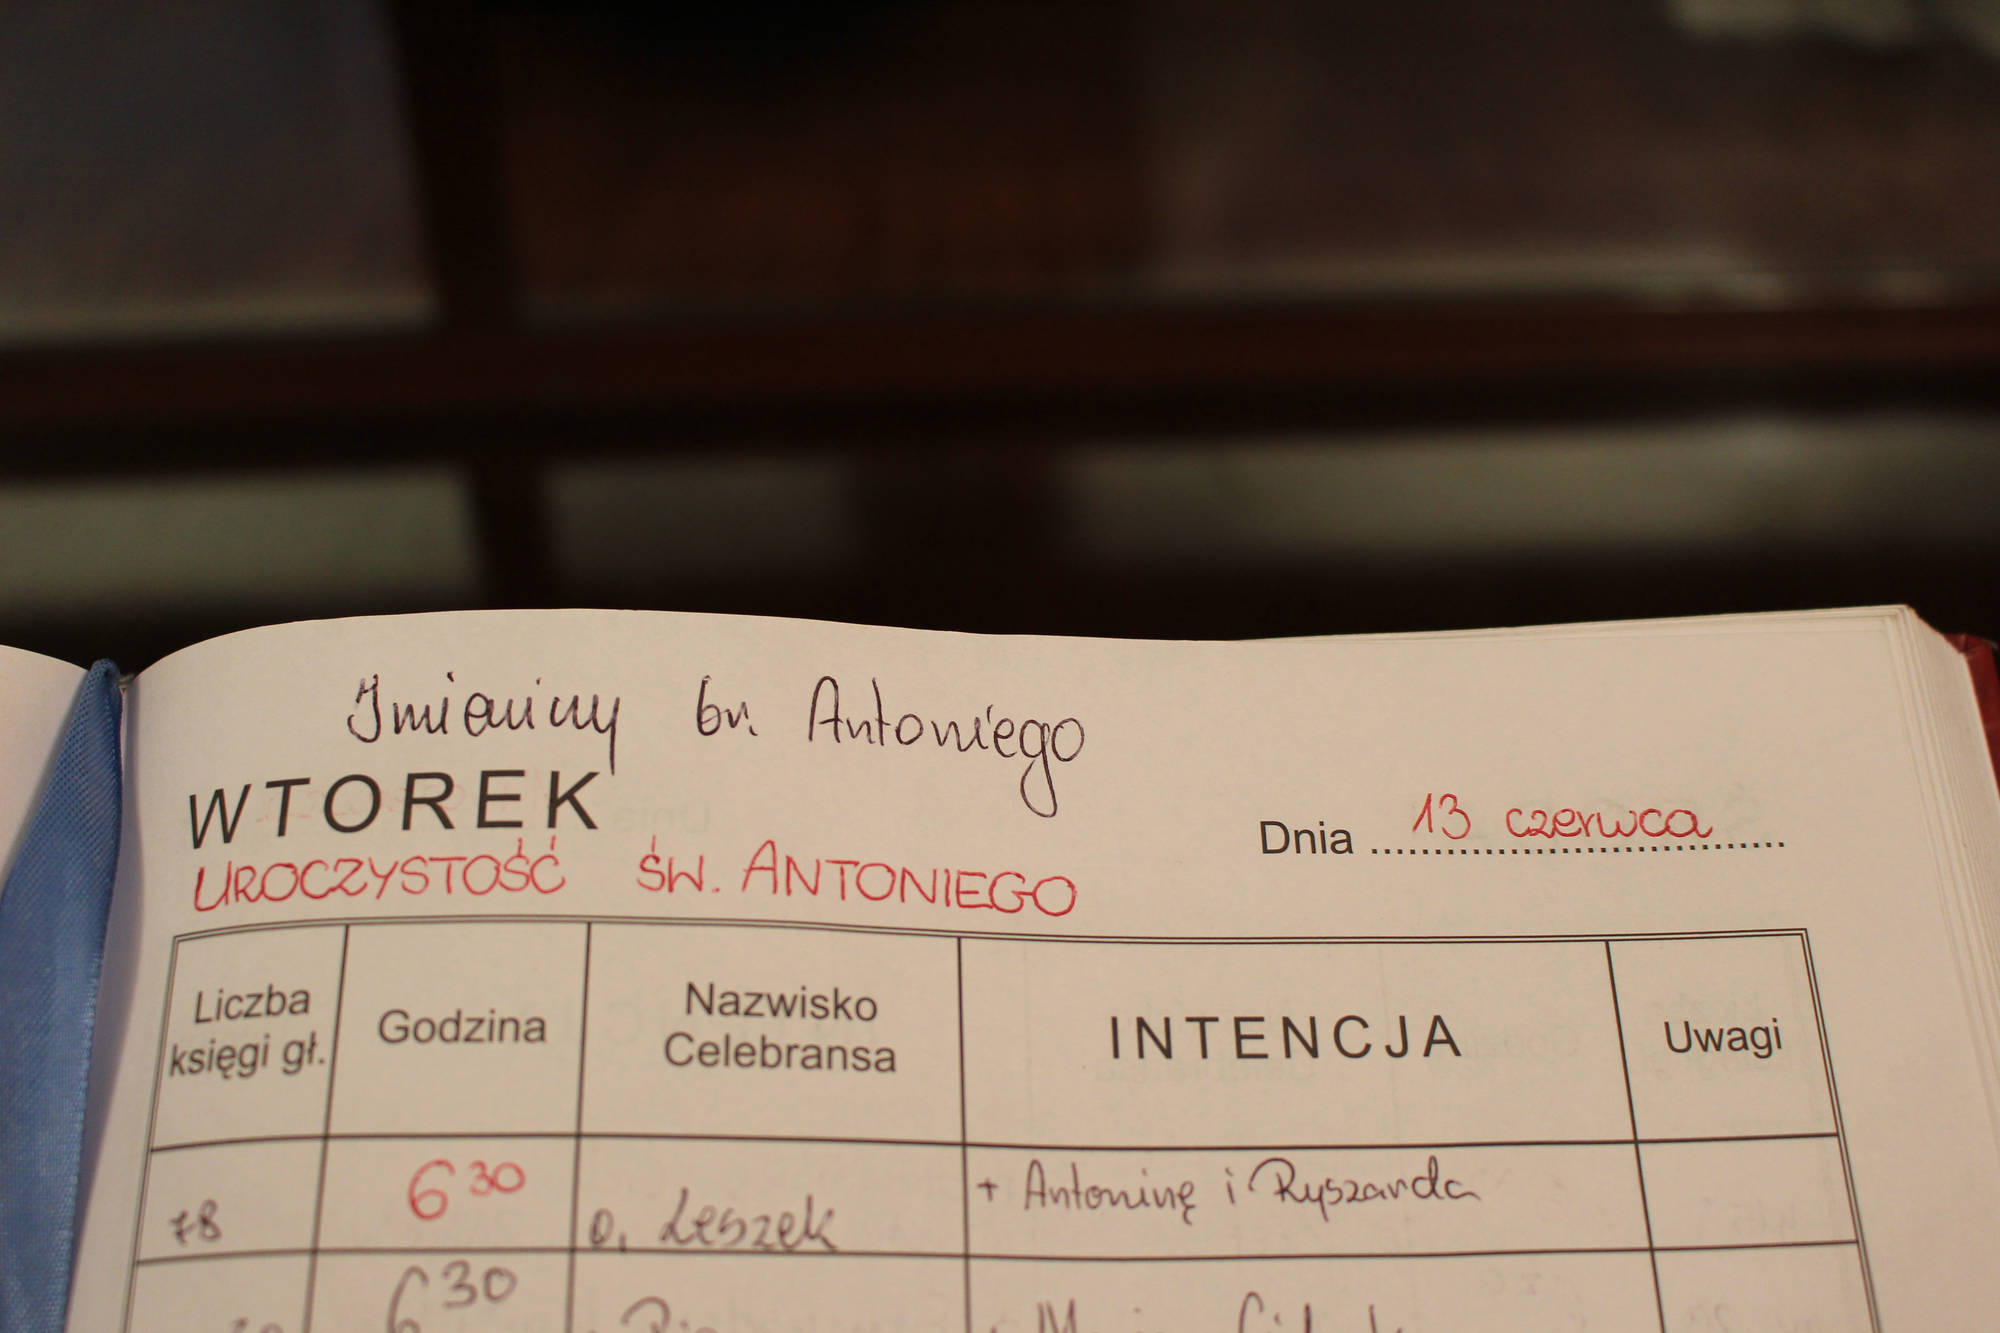 Imieniny br. Antoniego
WTOREK
Dnia 13 czerwca
UROCZYSTOŚĆ ŚW. ANTONIEGO
Liczba
księgi gł.
Godzina
Nazwisko
Celebransa
INTENCJA
Uwagi
78
6 30
o. Leszek
+ Antoninę i Ryszarda
6 30